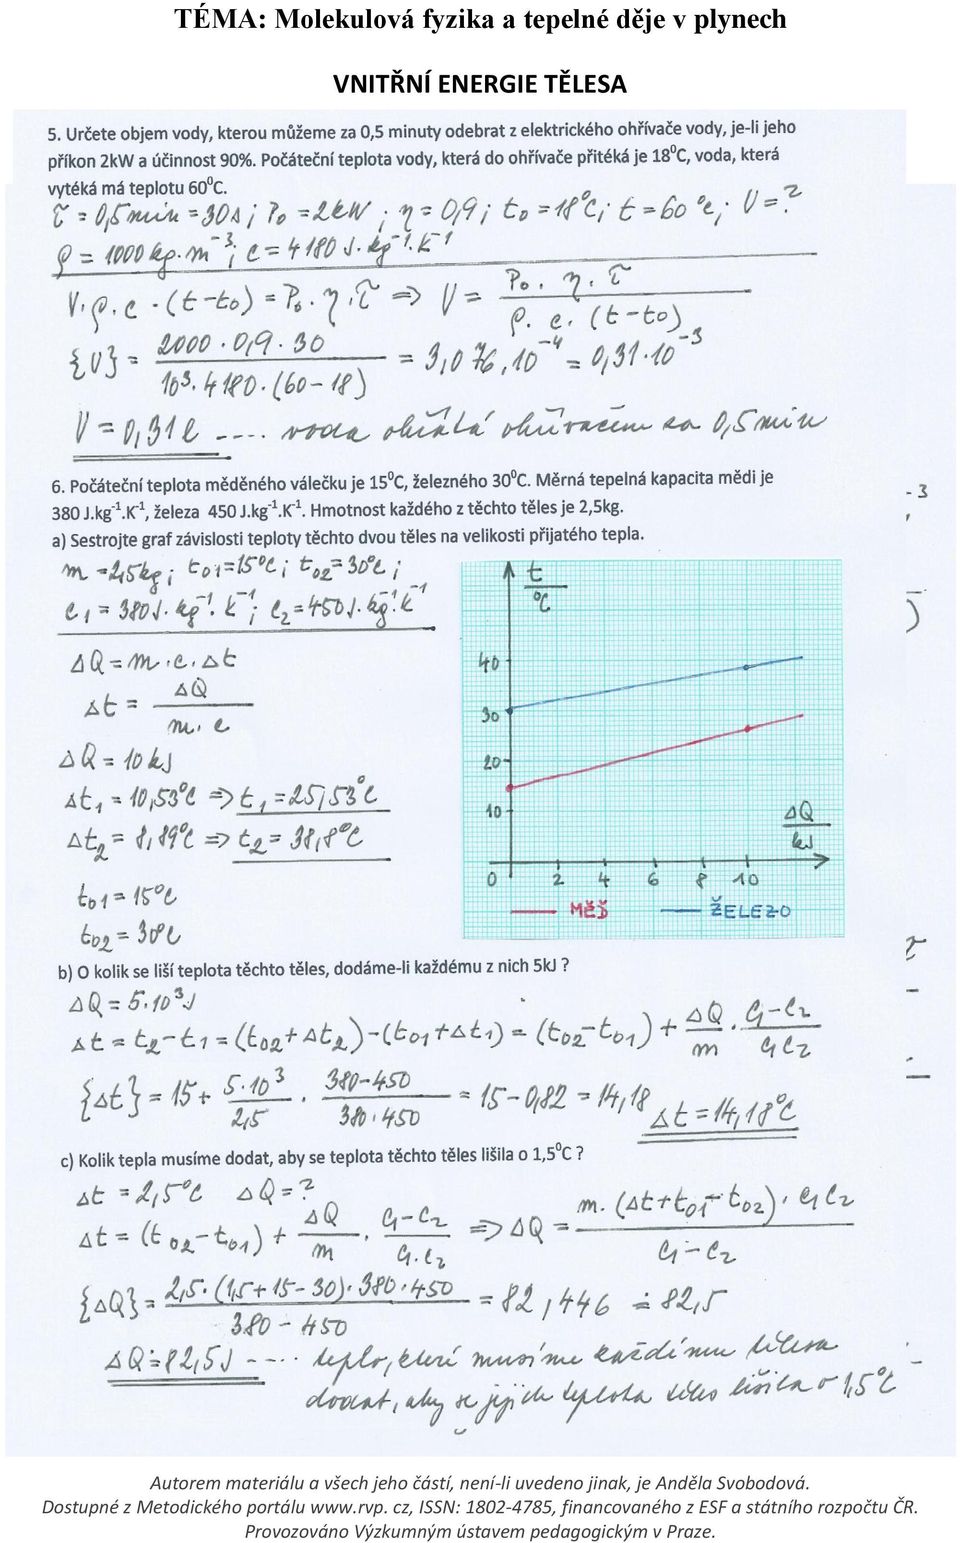 TÉMA: Molekulová fyzika a tepelné děje v plynech
VNITŘNÍ ENERGIE TĚLESA
5. Určete objem vody, kterou můžeme za 0,5 minuty odebrat z elektrického ohřívače vody, je-li jeho
příkon 2kW a účinnost 90%. Počáteční teplota vody, která do ohřívače přitéká je 18⁰C, voda, která
vytéká má teplotu 60⁰C.
τ = 0,5min = 30s ; P₀ = 2kW ; η = 0,9 ; t₀ = 18°C ; t = 60°C ; V = ?
ρ = 1000 kg.m⁻³ ; c = 4180 J.kg⁻¹.K⁻¹
V.ρ.c.(t-t₀) = P₀.η.τ => V = P₀.η.τ / ρ.c.(t-t₀)
{V} = 2000.0,9.30 / 10³.4180.(60-18) = 3,076.10⁻⁴ = 0,31.10⁻³
V = 0,31 l .... voda ohřátá ohřívačem za 0,5min
6. Počáteční teplota měděného válečku je 15⁰C, železného 30⁰C. Měrná tepelná kapacita mědi je
380 J.kg⁻¹.K⁻¹, železa 450 J.kg⁻¹.K⁻¹. Hmotnost každého z těchto těles je 2,5kg.
a) Sestrojte graf závislosti teploty těchto dvou těles na velikosti přijatého tepla.
m = 2,5kg ; t₀₁ = 15°C ; t₀₂ = 30°C ;
c₁ = 380J.kg⁻¹.K⁻¹ ; c₂ = 450J.kg⁻¹.K⁻¹
ΔQ = m.c.Δt
Δt = ΔQ / m.c
ΔQ = 10kJ
Δt₁ = 10,53°C => t₁ = 25,53°C
Δt₂ = 8,89°C => t₂ = 38,8°C
t₀₁ = 15°C
t₀₂ = 30°C
t / °C
40
30
20
10
ΔQ / kJ
0 2 4 6 8 10
MĚĎ ŽELEZO
b) O kolik se liší teplota těchto těles, dodáme-li každému z nich 5kJ ?
ΔQ = 5.10³J
Δt = t₂-t₁ = (t₀₂+Δt₂)-(t₀₁+Δt₁) = (t₀₂-t₀₁) + ΔQ/m . c₁-c₂ / c₁c₂
{Δt} = 15 + 5.10³ / 2,5 . 380-450 / 380.450 = 15-0,82 = 14,18 Δt = 14,18°C
c) Kolik tepla musíme dodat, aby se teplota těchto těles lišila o 1,5⁰C ?
Δt = 2,5°C ΔQ = ?
Δt = (t₀₂-t₀₁) + ΔQ/m . c₁-c₂ / c₁.c₂ => ΔQ = m.(Δt+t₀₁-t₀₂).c₁c₂ / c₁-c₂
{ΔQ} = 2,5.(1,5+15-30).380.450 / 380-450 = 82,446 ≐ 82,5
ΔQ ≐ 82,5J .... teplo, které musíme každému tělesu
dodat, aby se jejich teplota těles lišila o 1,5°C
Autorem materiálu a všech jeho částí, není-li uvedeno jinak, je Anděla Svobodová.
Dostupné z Metodického portálu www.rvp. cz, ISSN: 1802-4785, financovaného z ESF a státního rozpočtu ČR.
Provozováno Výzkumným ústavem pedagogickým v Praze.